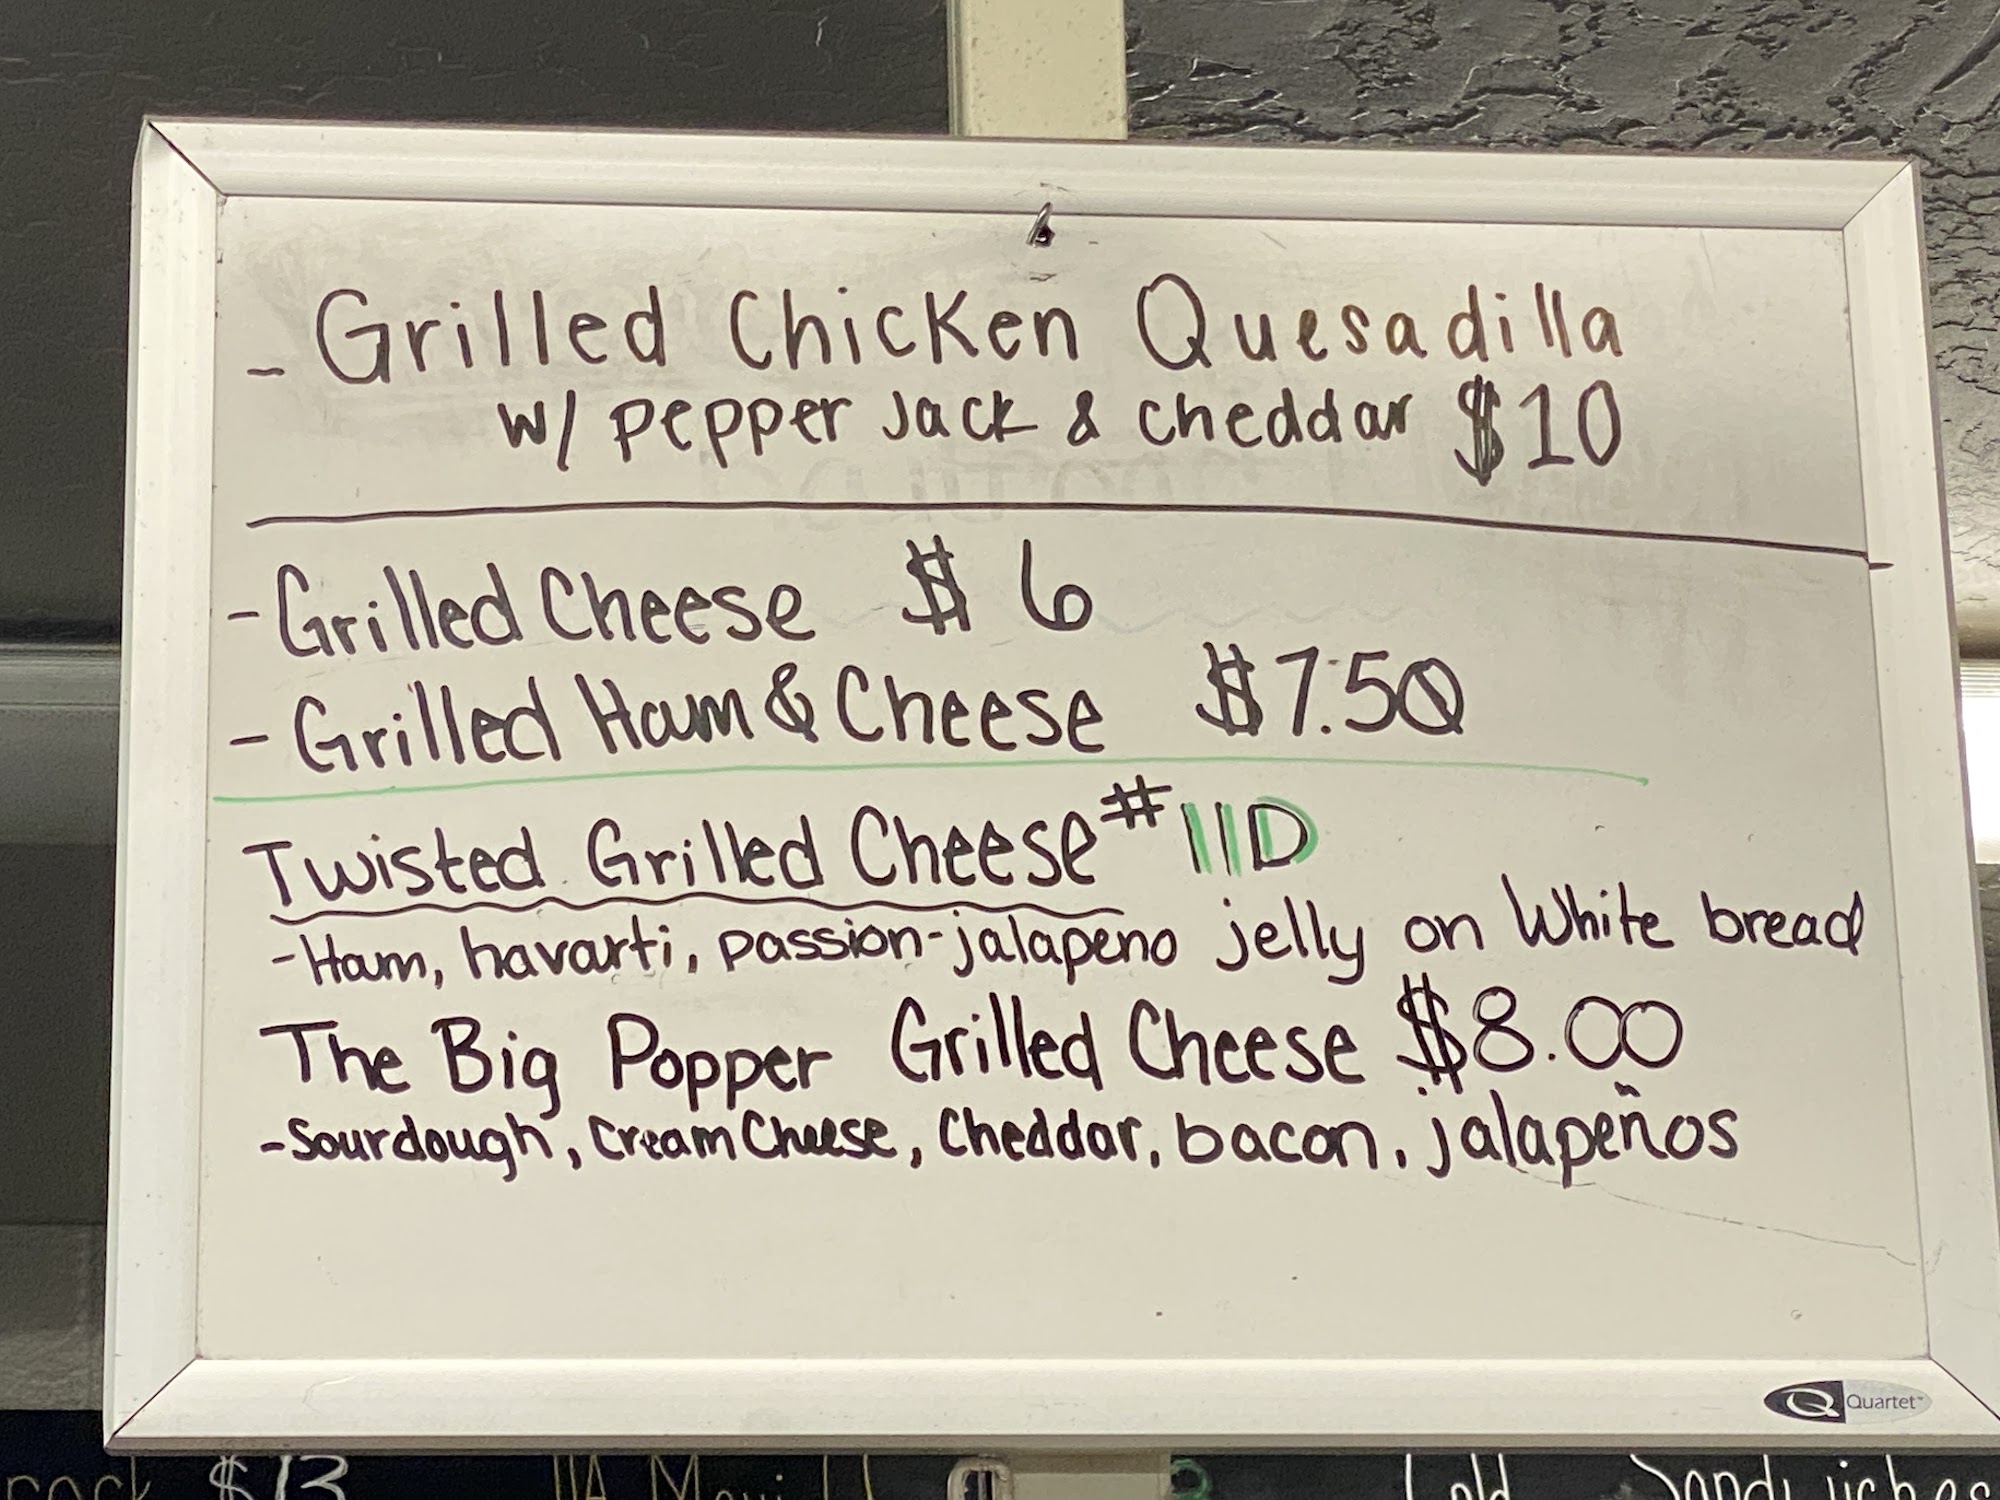 - Grilled Chicken Quesadilla
w/ pepper Jack & cheddar $10
- Grilled Cheese $6
- Grilled Ham & Cheese $7.50
Twisted Grilled Cheese #11D
- Ham, havarti, passion-jalapeno jelly on White bread
The Big Popper Grilled Cheese $8.00
- Sourdough, Cream Cheese, Cheddar, bacon, jalapeños
Quartet
$13 11A Maui Cold Sandwiches